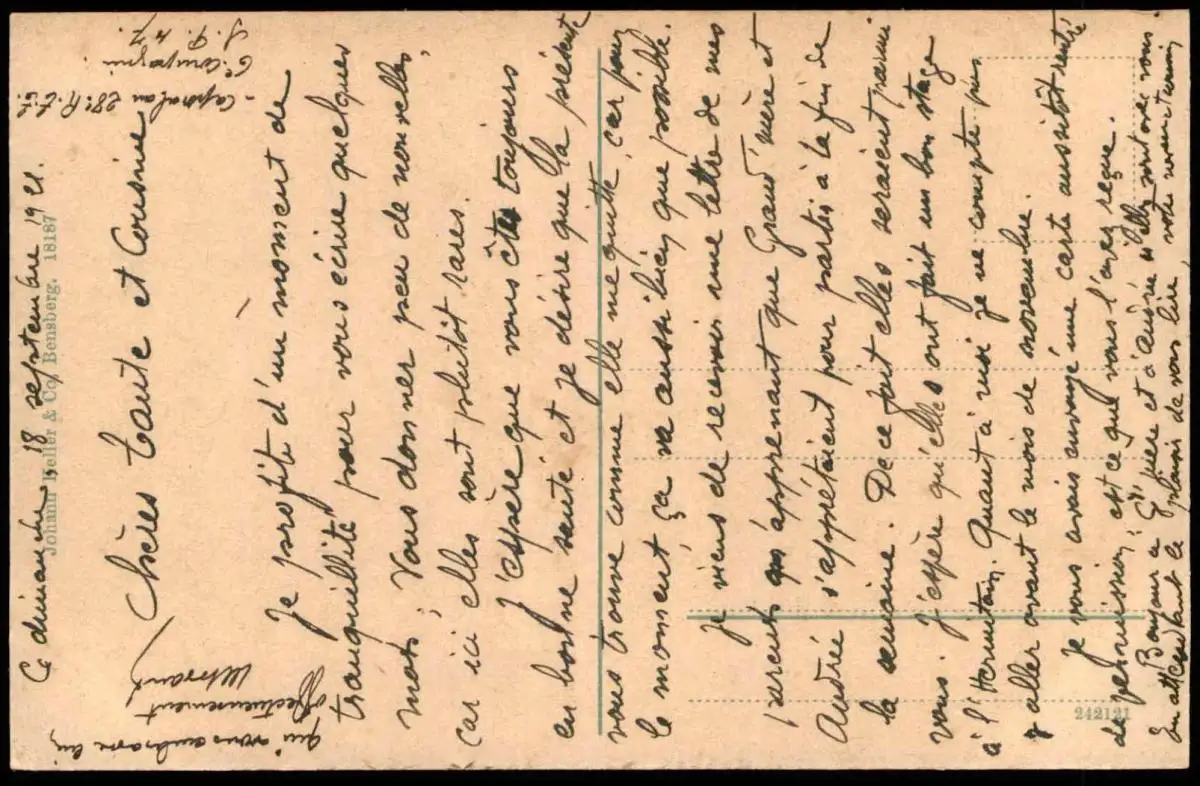 Ce dimanche, 18 septembre 1921.
Chères tante et Cousine
Je profite d'un moment de
tranquillité pour vous écrire quelques
mots. Vous donner peu de nouvelles,
car ici elles sont plutôt rares.
J'espère que vous êtes toujours
en bonne santé et je désire que la présente
vous trouve comme elle me quitte, car pour
le moment, ça va aussi bien que possible.
Je viens de recevoir une lettre de mes
parents m'apprenant que Grand'mère et
Andrée s'apprêtaient pour partir à la fin de
la semaine. De ce fait elles seraient parmi
vous. J'espère qu'elles ont fait un bon stage
à l'Hermitain. Quant à moi je ne compte pas
y aller avant le mois de novembre.
Je vous avais envoyé une carte aussitôt rentré
de permission, est ce que vous l'avez reçue.
Bonjour à Gd père et à Andrée si elles sont avec vous
En attendant le plaisir de vous lire, votre neveu et cousin
qui vous embrasse bien
Affectueusement
- Caporal au 28e R.
6e compagnie
S. P. 47.
Johann Heller & Co, Bensberg. 18187
242121